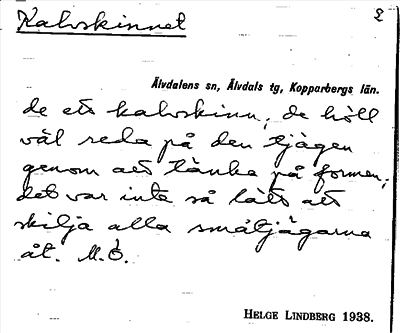 Kalvskinnet
2
Älvdalens sn, Älvdals tg, Kopparbergs län.
de ett kalvskinn; de höll
väl reda på den tjägen
genom att tänka på formen;
det var inte så lätt att
skilja alla småtjägarna
åt. M.Ö.
HELGE LINDBERG 1938.